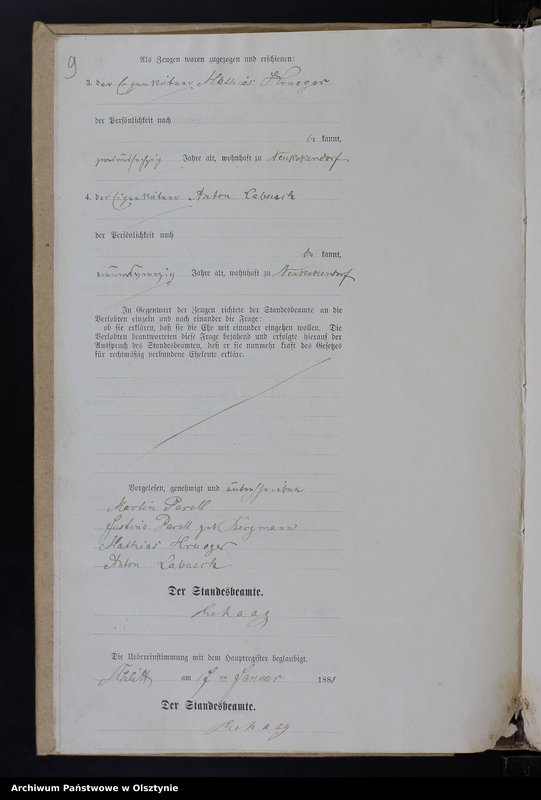 9
Als Zeugen waren zugezogen und erschienen:
3. der Eigenkätner Mathias Krueger
der Persönlichkeit nach
be kannt,
zweiundsechzig Jahre alt, wohnhaft zu Neukokendorf
4. der Eigenkätner Anton Labusch
der Persönlichkeit nach
be kannt,
Jahre alt, wohnhaft zu Neukokendorf
In Gegenwart der Zeugen richtete der Standesbeamte an die
Verlobten einzeln und nach einander die Frage:
ob sie erklären, daß sie die Ehe mit einander eingehen wollen. Die
Verlobten beantworteten diese Frage bejahend und erfolgte hierauf der
Ausspruch des Standesbeamten, daß er sie nunmehr kraft des Gesetzes
für rechtmäßig verbundene Eheleute erkläre.
Vorgelesen, genehmigt und unterschrieben
Martin Paroll
Justine Paroll geb. Bergmann
Mathias Krueger
Anton Labusch
Der Standesbeamte.
Die Uebereinstimmung mit dem Hauptregister beglaubigt.
am ten Januar 1881
Der Standesbeamte.
Archiwum Państwowe w Olsztynie